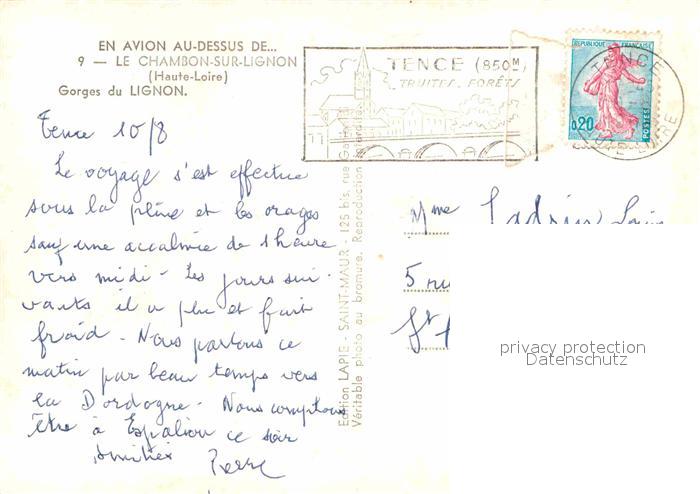 EN AVION AU-DESSUS DE...
9 — LE CHAMBON-SUR-LIGNON
(Haute-Loire)
Gorges du LIGNON.
Tence 10/8
Le voyage s'est effectué
sous la pluie et les orages
sauf une accalmie de 1 heure
vers midi - Les jours sui-
vants il a plu et fait
froid - Nous partons ce
matin par beau temps vers
la Dordogne - Nous comptons
être à Espalion ce soir
Amitiés Pierre
Edition LAPIE - SAINT-MAUR - 125 bis rue
Véritable photo au bromure. Reproduction
TENCE (850M)
TRUITES. FORÊTS
REPUBLIQUE FRANÇAISE
0,20
POSTES
TENCE
HAUTE-LOIRE
Mme
5 ru
St
privacy protection
Datenschutz